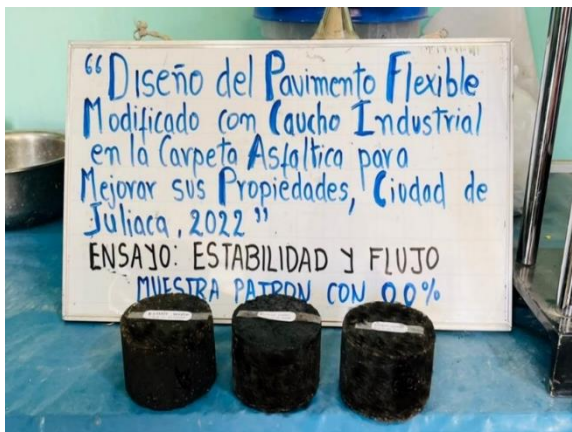 “Diseño del Pavimento Flexible
Modificado con Caucho Industrial
en la Carpeta Asfaltica para
Mejorar sus Propiedades, Ciudad de
Juliaca, 2022”
ENSAYO: ESTABILIDAD Y FLUJO
MUESTRA PATRON CON 0.0%